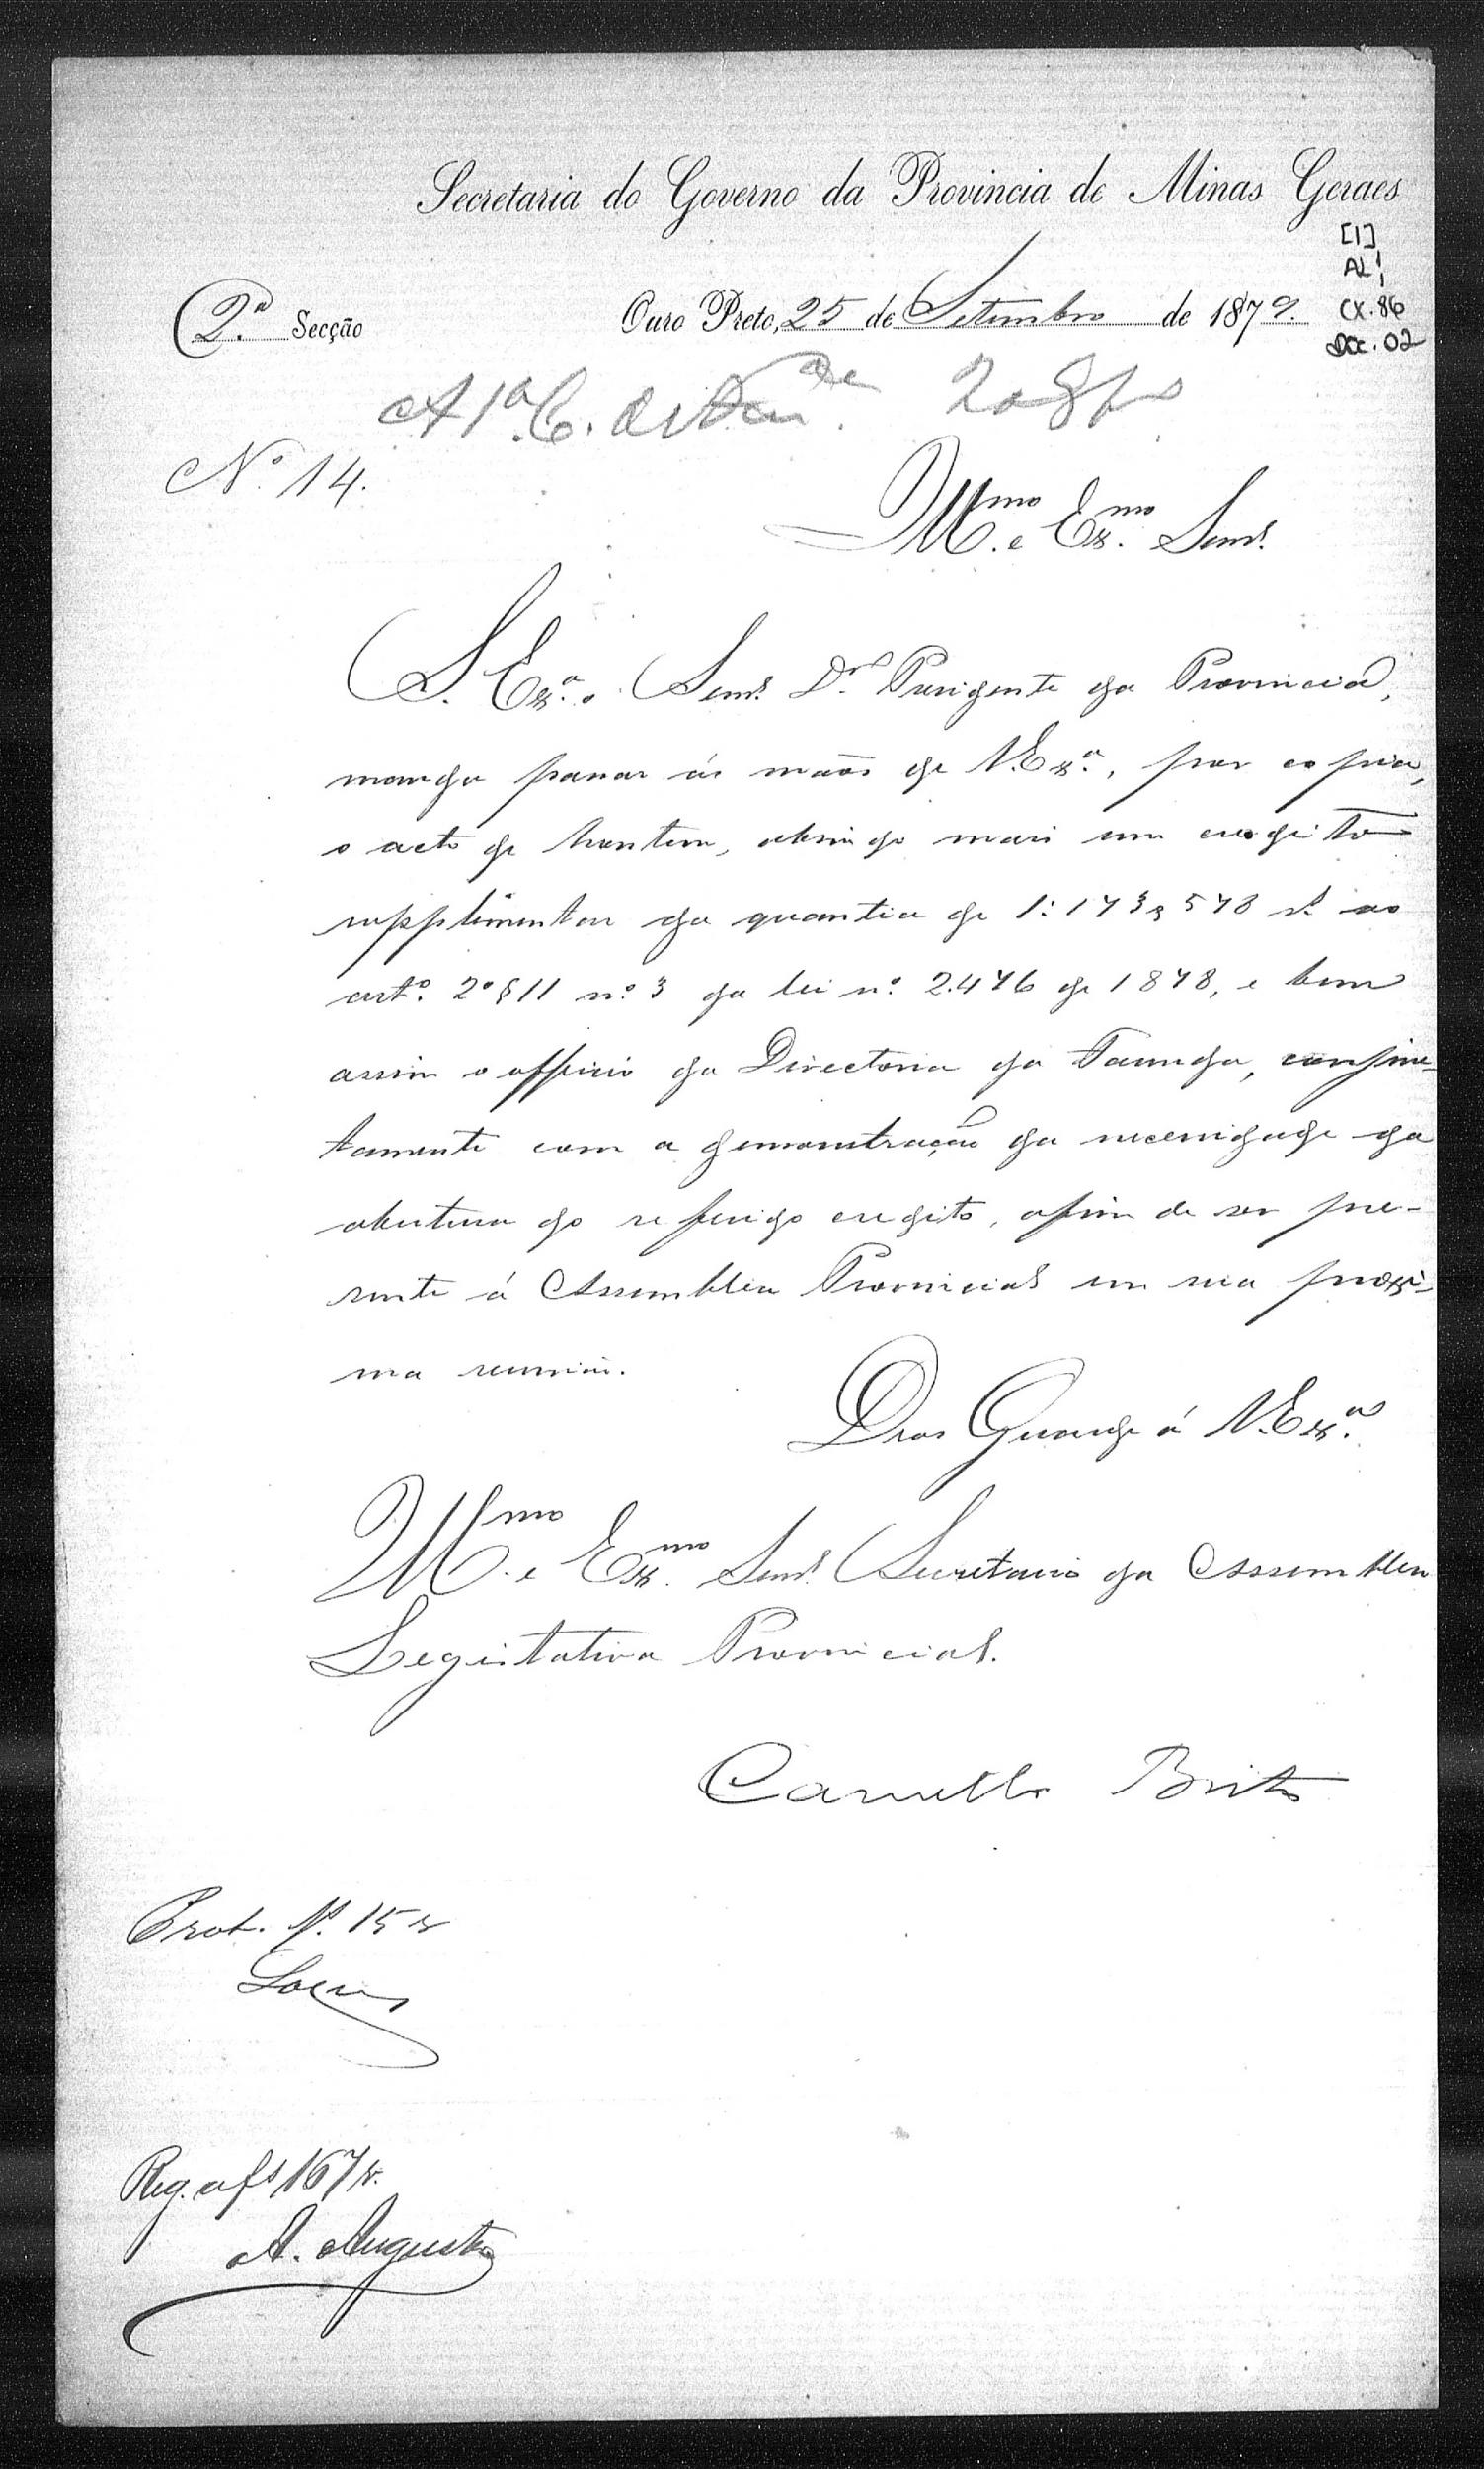 Secretaria do Governo da Provincia de Minas Geraes
[1]
AL1
CX. 86
DOC. 02
2.ª Secção
Ouro Preto, 25 de Setembro de 1879.
A 1ª C.
Nº 14.
Ill.mo e Ex.mo Senr.
S. Ex.ª o Senr. Dr. Presidente da Provincia,
manda passar ás mãos de V. Ex.ª, por copia,
o acto de hontem, abrindo mais um credito
supplementar da quantia de 1:173$578 rs. ao
art.º 2º § 11 nº 3 da lei nº 2.476 de 1878, e bem
assim o officio da Directoria da Fazenda, conjunc-
tamente com a demonstração da necessidade da
abertura do referido credito, afim de ser pre-
sente á Assemblea Provincial em sua proxi-
ma reunião.
Deos Guarde á V. Ex.ª
Ill.mo e Ex.mo Senr. Secretario da Assemblea
Legislativa Provincial.
Camillo Brito
Prot. f. 15 v
Reg. a fs 167 v.
A. Augusto